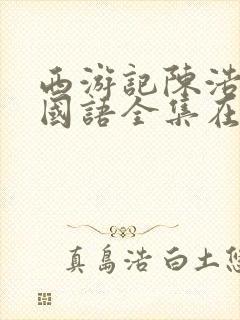 西游記陳浩
國語全集在
真島浩 白土悠